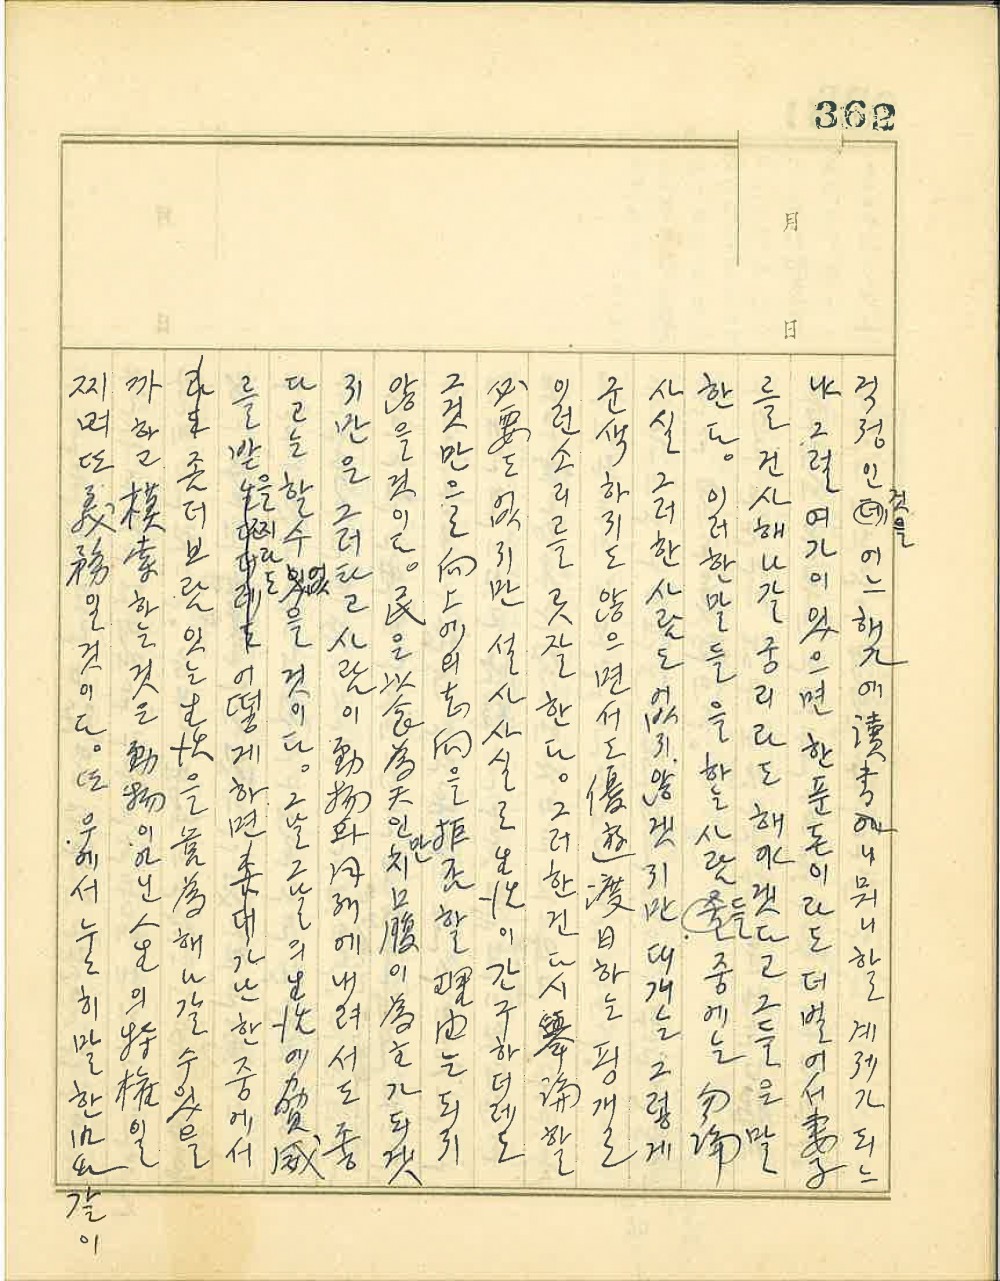 362
月
日
걱정인것을 어느 해가에 讀書에니 뭐니 할 계제가 되느
냐 그럴 여가이 있으면 한푼돈이라도 더벌어서 妻子
를 건사해나갈 궁리라도 해야겟다고 그들은 말
한다。 이러한말들을 하는 사람들 중에는 勿論
사실 그러한사람도 없지않겟지만 대개는 그렇게
군색하지도 않으면서도 優遊渡日하는 핑개로
이런소리를 곳잘 한다。 그러한건 다시 擧論할
必要도 없지만 설사 사실로 生活이 간구하더래도
그것만으로 向上에의 志向을 拒否할 理由는 되지
않을것이다。 民은 以食為天인만치 口腹이 為主가 되겟
지만은 그러타고 사람이 動物와 同列에 내려서도 좋
다고는 할수없을 것이다。 그날 그날의 生活에 脅威
를 받을찌라도 어떻게 하면 가난한 중에서
좀더 보람있는 生活을 営為해나갈 수있을
까 하고 模索하는것은 動物이 안인 人生의 特権일
찌며 또 義務일것이다。 또 우에서 누누히 말한바와 같이